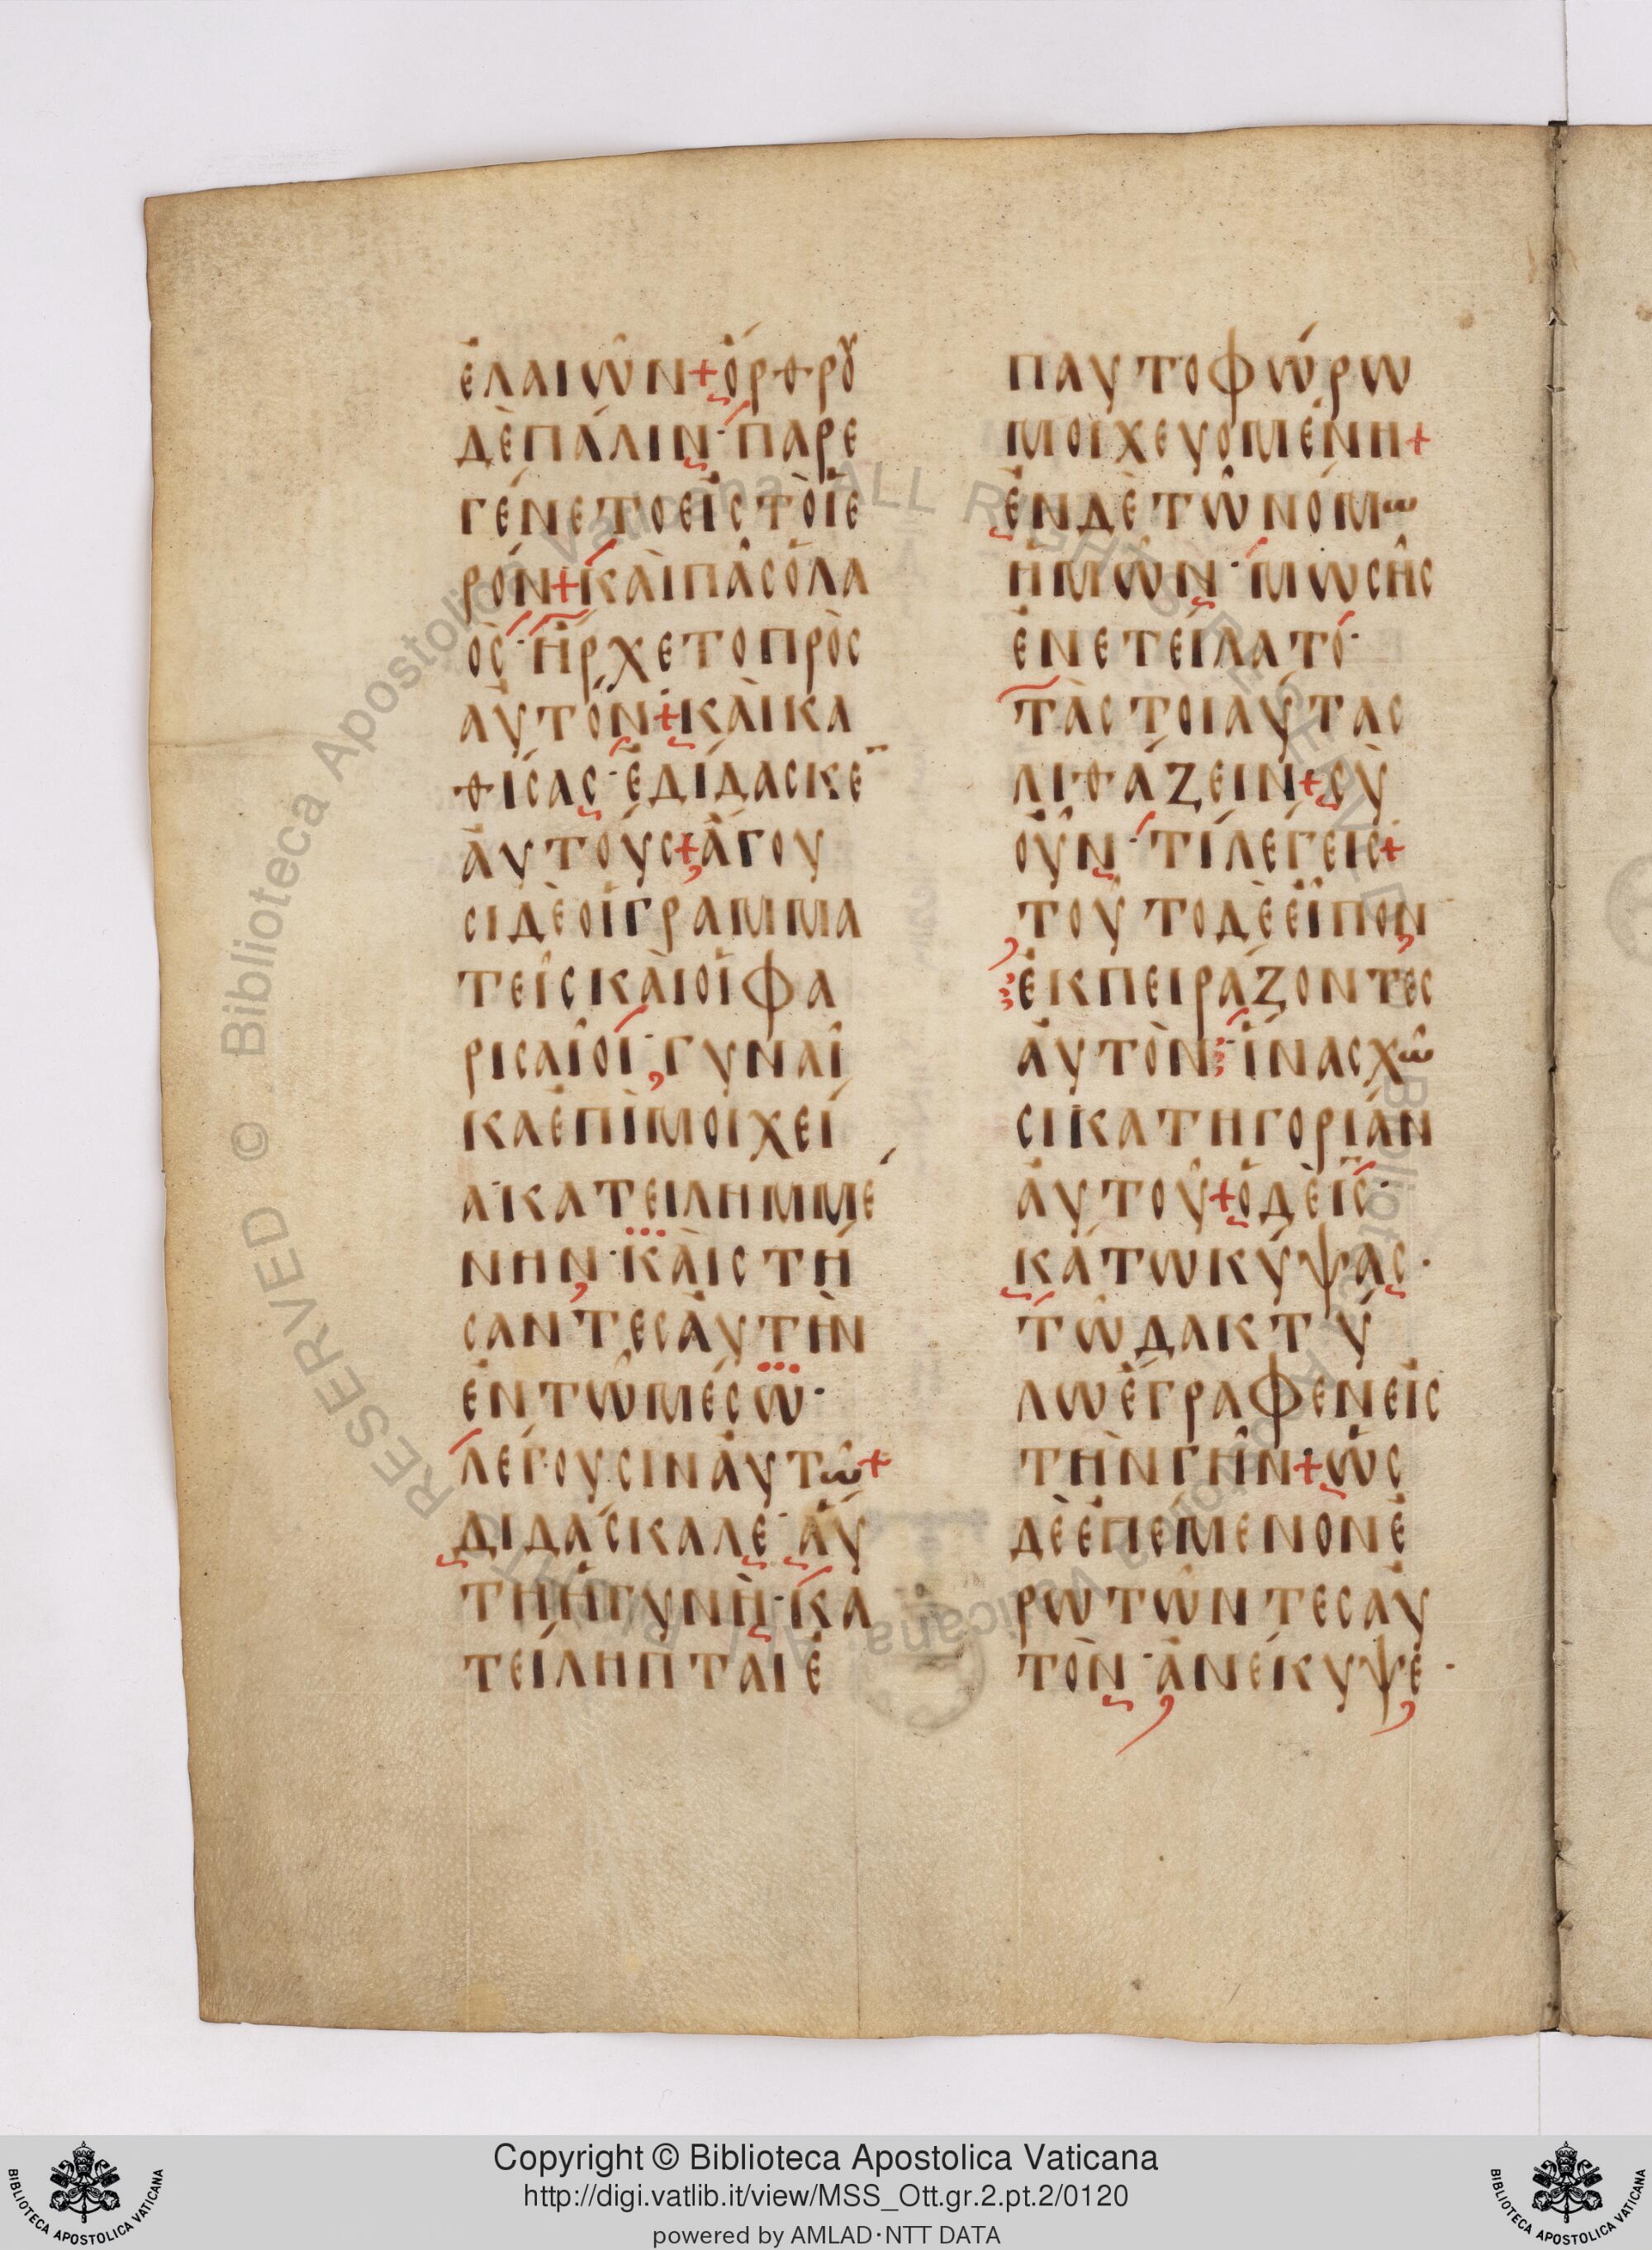 ἐλαιῶν + ὄρθρου
δὲ πάλιν · παρε
γένετο εἰς τὸ ἱε
ρόν + καὶ πᾶς ὁ λα
ὸς · ἤρχετο πρὸς
αὐτόν + καὶ κα
θίσας · ἐδίδασκεν
αὐτούς + ἄγου
σι δὲ οἱ γραμμα
τεῖς καὶ οἱ φα
ρισαῖοι · γυναῖ
κα ἐπὶ μοιχεί
α · κατειλημμέ
νην · καὶ στή
σαντες αὐτὴν
ἐν τῶ μέσω ·
λέγουσιν αὐτῶ +
διδάσκαλε · αὕ
τη ἡ γυνὴ · κα
τείληπται ἐ
παυτοφώρω
μοιχευομένη +
ἐν δὲ τῶ νόμω
ἡμῶν · μωσῆς
ἐνετείλατο ·
τὰς τοιαύτας
λιθάζειν + σὺ
οὖν · τί λέγεις +
τοῦτο δὲ εἶπον
ἐκπειράζοντες
αὐτὸν · ἵνα σχῶ
σι κατηγορίαν
αὐτοῦ + ὁ δὲ ἰς ·
κάτω κύψας ·
τῶ δακτύ
λω ἔγραφεν εἰς
τὴν γῆν + ὡς
δὲ ἐπέμενον ἐ
ρωτῶντες αὐ
τὸν · ἀνέκυψε ·
Biblioteca Apostolica Vaticana ALL RIGHTS RESERVED ©
Copyright © Biblioteca Apostolica Vaticana
http://digi.vatlib.it/view/MSS_Ott.gr.2.pt.2/0120
powered by AMLAD·NTT DATA
BIBLIOTECA APOSTOLICA VATICANA
BIBLIOTECA APOSTOLICA VATICANA